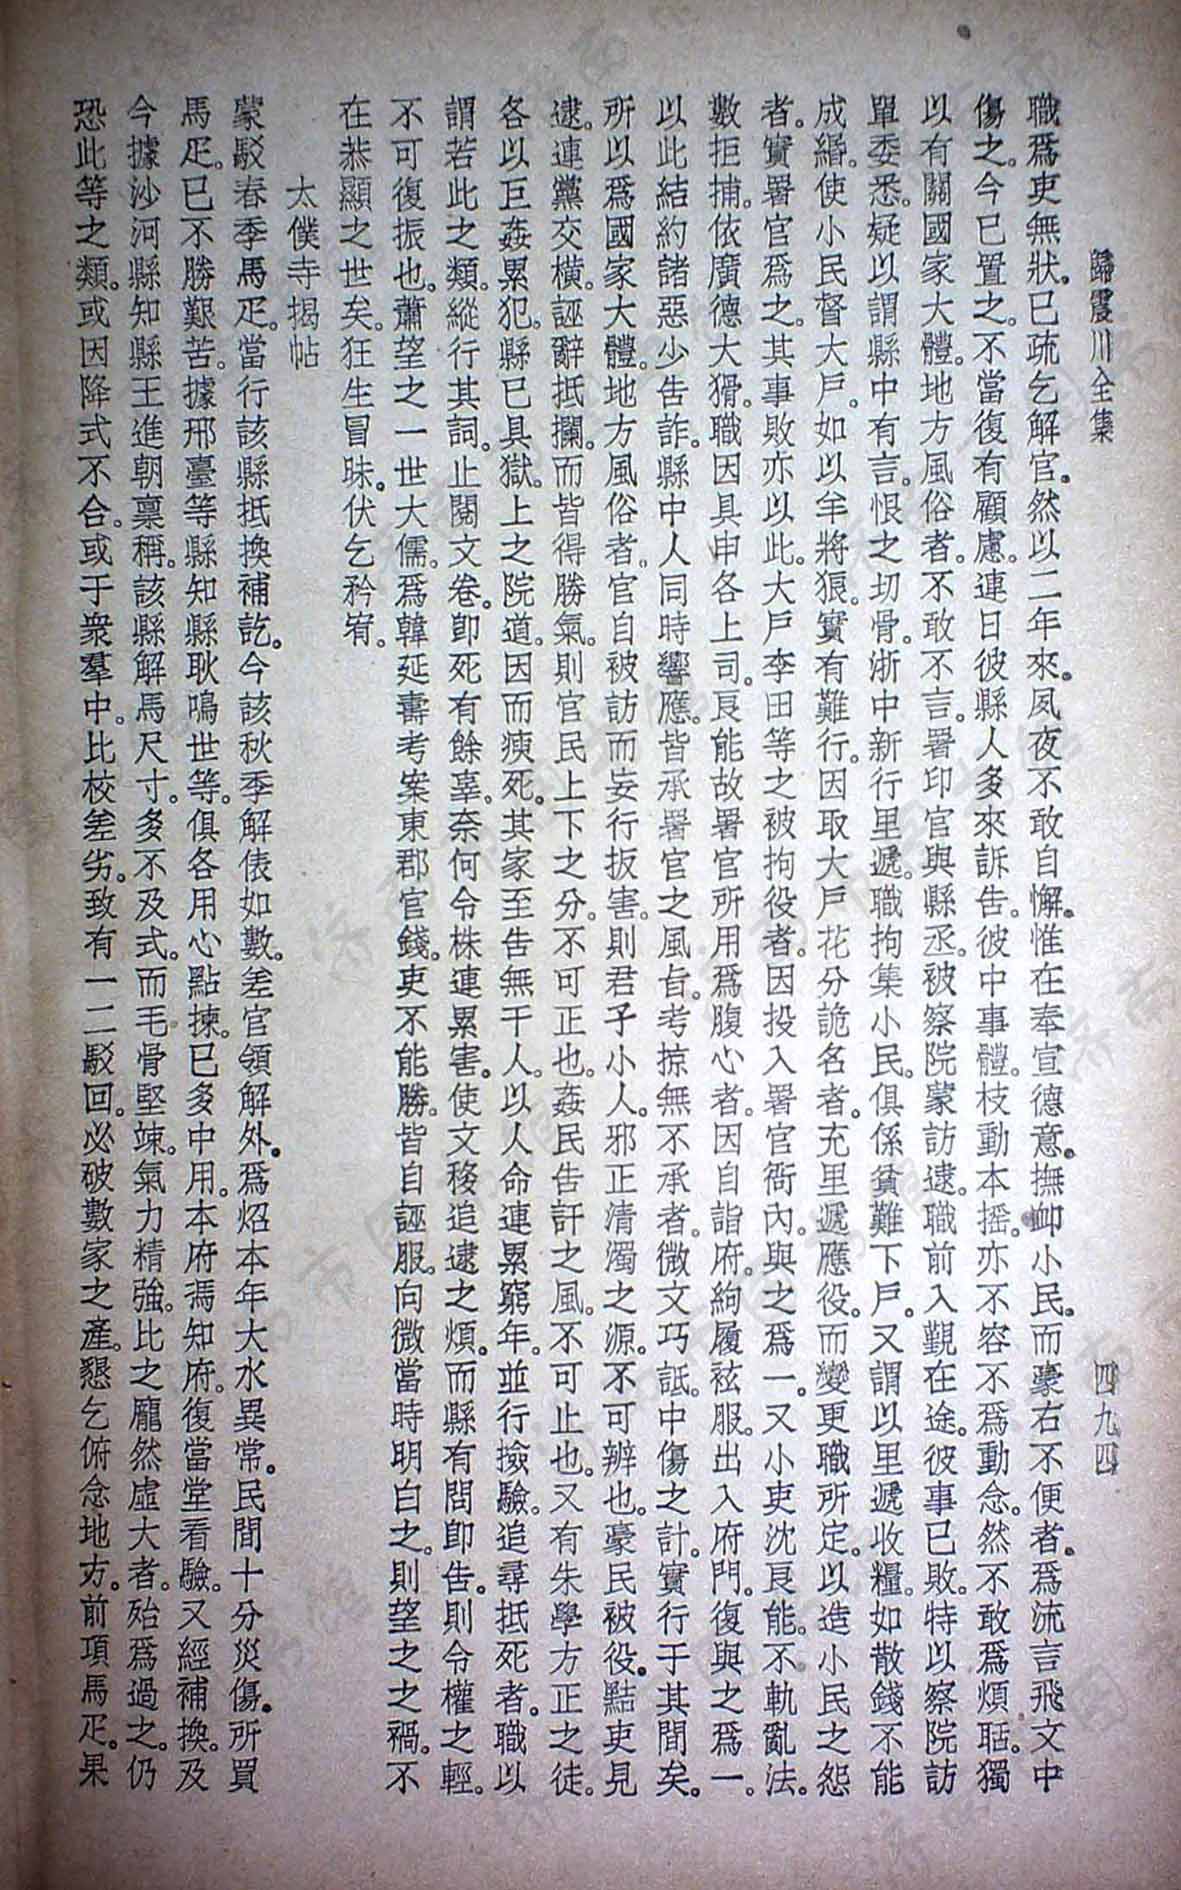 歸震川全集
四九四
職爲吏無狀。已疏乞解官。然以二年來。夙夜不敢自懈。惟在奉宣德意。撫卹小民。而豪右不便者。爲流言飛文中
傷之。今已置之。不當復有顧慮。連日彼縣人多來訴告。彼中事體。枝動本搖。亦不容不爲動念。然不敢爲煩聒。獨
以有關國家大體。地方風俗者。不敢不言。署印官與縣丞。被察院蒙訪逮。職前入覲在途。彼事已敗。特以察院訪
單委悉。疑以謂縣中有言。恨之切骨。浙中新行里遞。職拘集小民。俱係貧難下戶。又謂以里遞收糧。如散錢不能
成緡。使小民督大戶。如以羊將狼。實有難行。因取大戶花分詭名者。充里遞應役。而變更職所定。以造小民之怨
者。實署官爲之。其事敗亦以此。大戶李田等之被拘役者。因投入署官衙內。與之爲一。又小吏沈良能。不軌亂法。
數拒捕。依廣德大猾。職因具申各上司。良能故署官所用爲腹心者。因自詣府。絇履袨服。出入府門。復與之爲一。
以此結約諸惡少告詐。縣中人同時響應。皆承署官之風旨。考掠無不承者。微文巧詆。中傷之計。實行于其間矣。
所以爲國家大體。地方風俗者。官自被訪而妄行扳害。則君子小人。邪正清濁之源。不可辨也。豪民被役。黠吏見
逮。連黨交橫。誣辭抵攔。而皆得勝氣。則官民上下之分。不可正也。姦民告訐之風。不可止也。又有朱學方正之徒。
各以巨姦累犯。縣已具獄。上之院道。因而瘐死。其家至告無干人。以人命連累窮年。並行撿驗。追尋抵死者。職以
謂若此之類。縱行其詞。止閱文卷。卽死有餘辜。奈何令株連累害。使文移追逮之煩。而縣有問卽告。則令權之輕。
不可復振也。蕭望之一世大儒。爲韓延壽考案東郡官錢。吏不能勝。皆自誣服。向微當時明白之。則望之之禍。不
在恭顯之世矣。狂生冒昧。伏乞矜宥。
太僕寺揭帖
蒙駁春季馬疋。當行該縣抵換補訖。今該秋季解俵如數。差官領解外。爲炤本年大水異常。民間十分災傷。所買
馬疋。已不勝艱苦。據邢臺等縣知縣耿鳴世等。俱各用心點揀。已多中用。本府馮知府。復當堂看驗。又經補換。及
今據沙河縣知縣王進朝稟稱。該縣解馬尺寸。多不及式。而毛骨堅竦。氣力精強。比之龐然虛大者。殆爲過之。仍
恐此等之類。或因降式不合。或于衆羣中。比校差劣。致有一二駁回。必破數家之產。懇乞俯念地方。前項馬疋。果